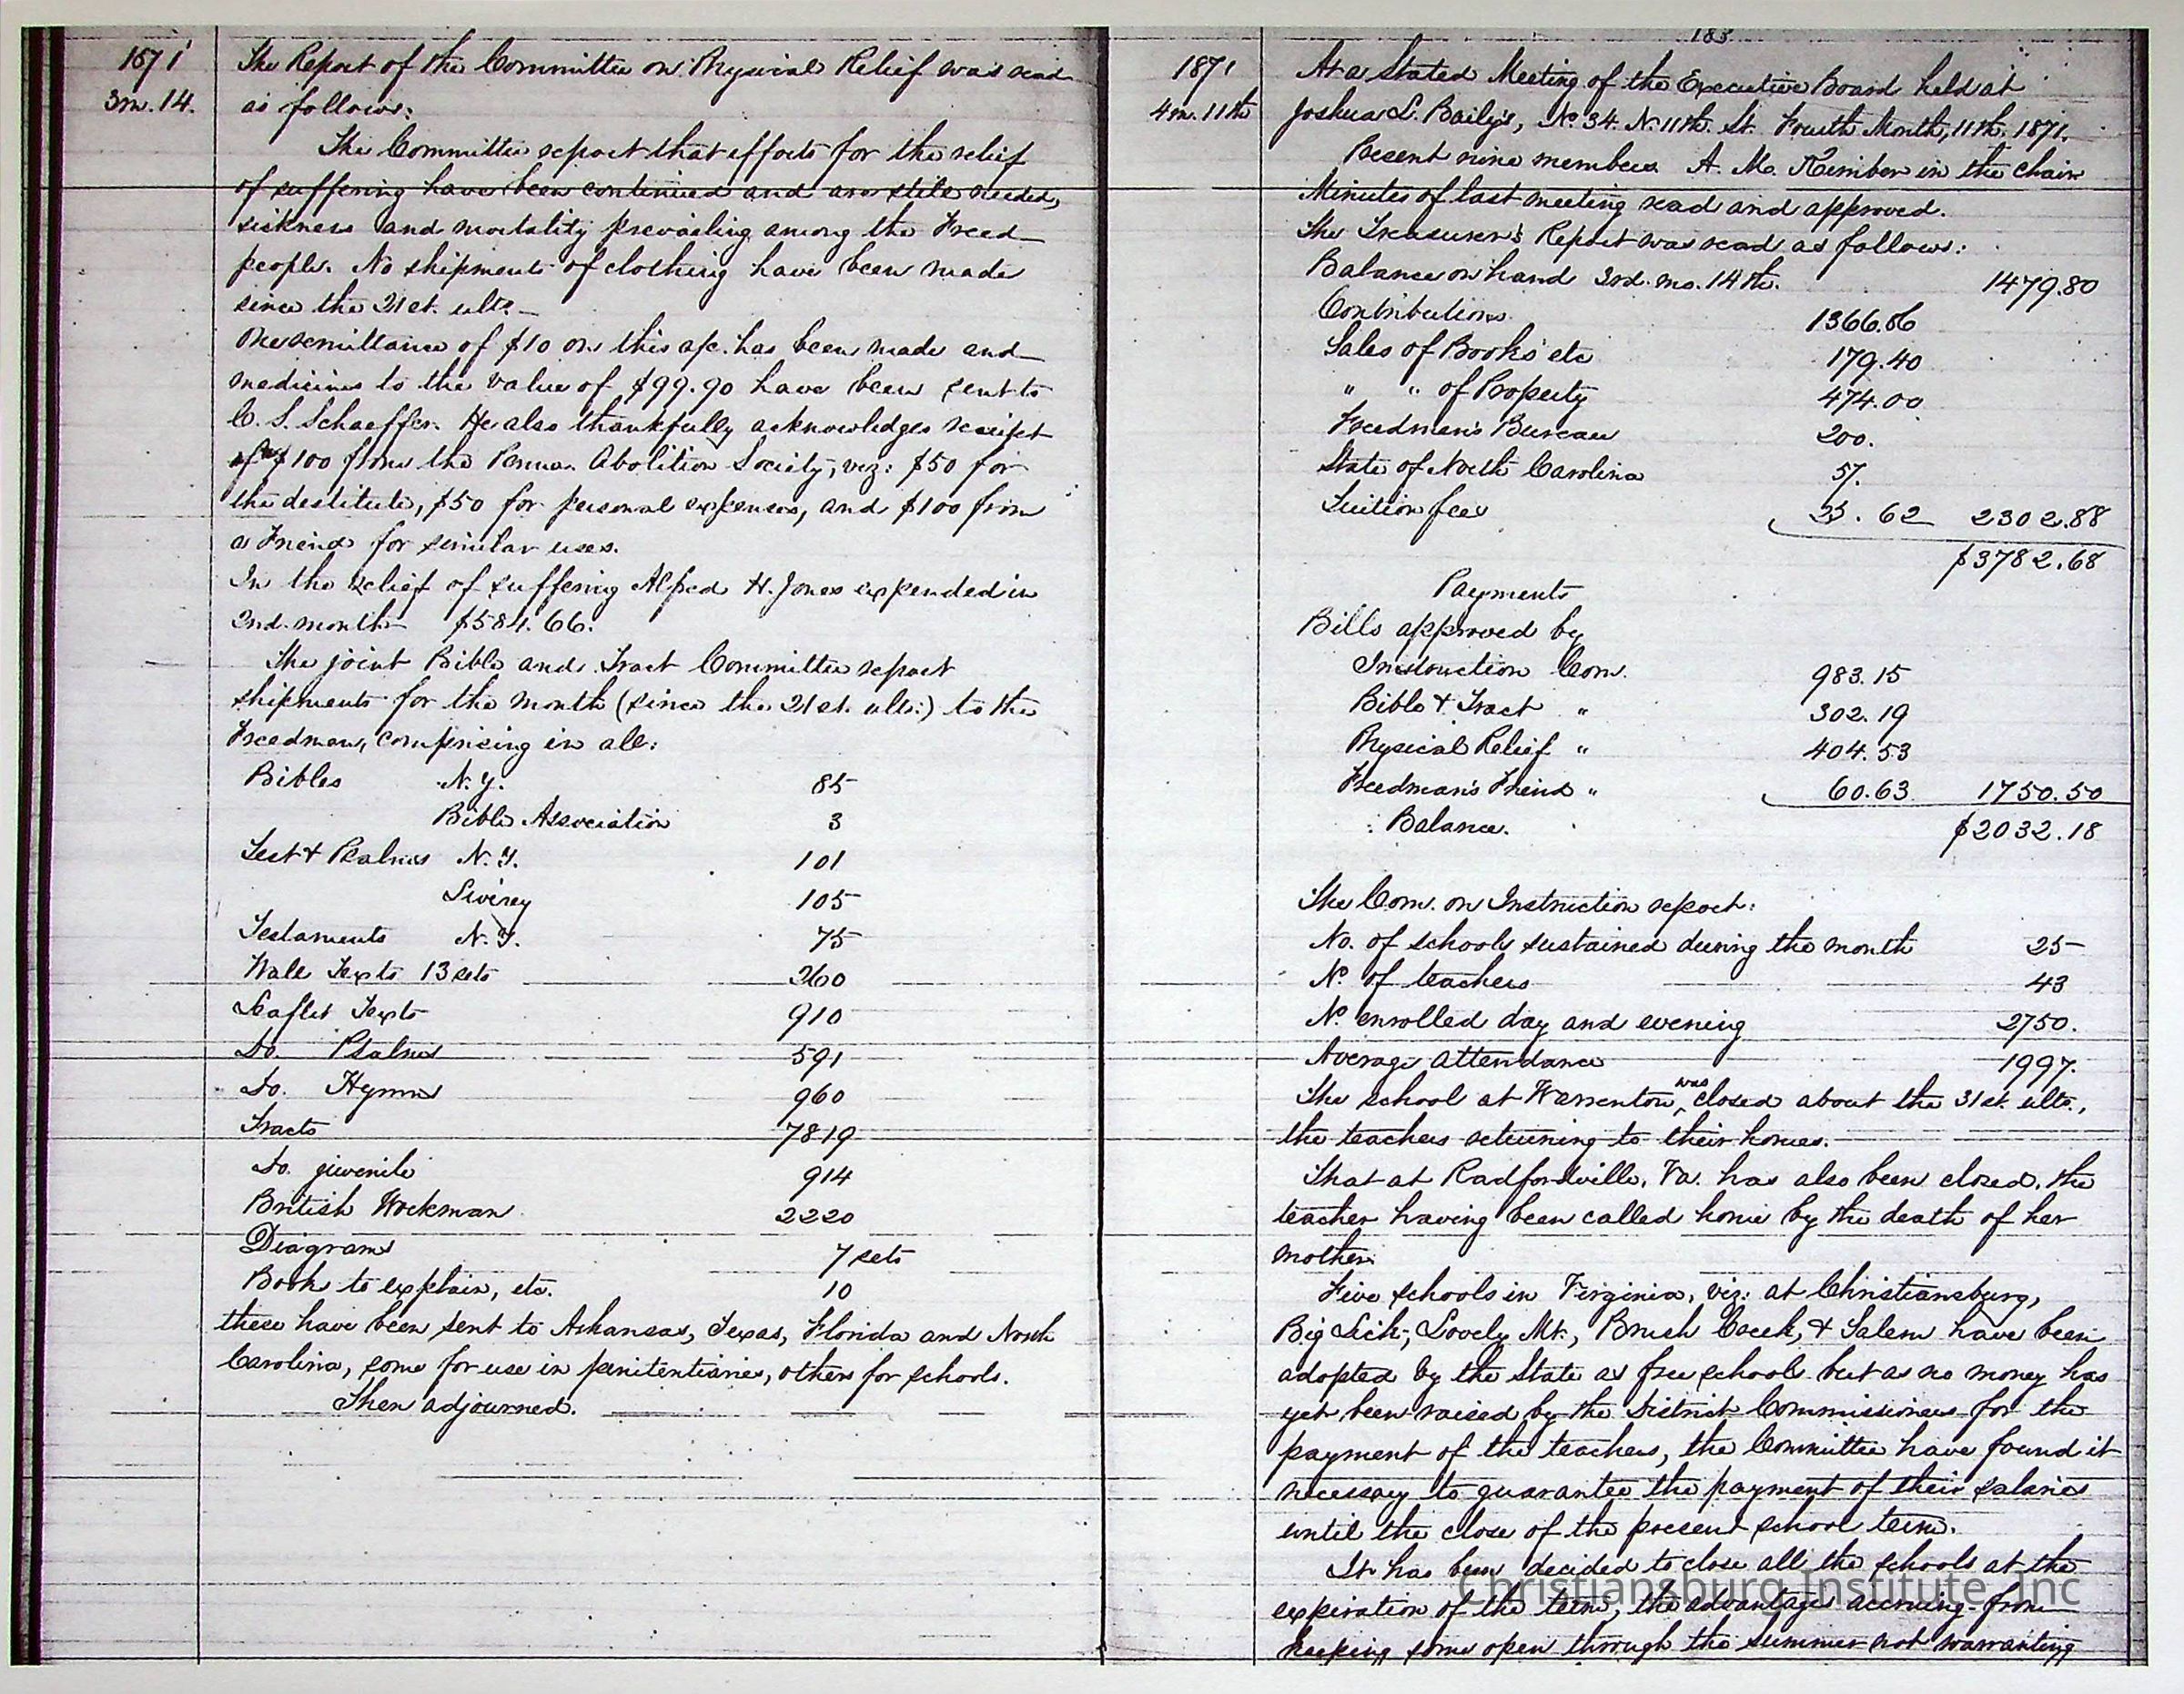 1871
3m. 14.
The Report of the Committee on Physical Relief was read
as follows:
The Committee report that efforts for the relief
of suffering have been continued and are still needed,
sickness and mortality prevailing among the Freed
people. No shipments of clothing have been made
since the 21st. ulto.
One remittance of $10 on this a/c. has been made and
medicines to the value of $99.90 have been sent to
C. S. Schaeffer. He also thankfully acknowledges receipt
of $100 from the Penna. Abolition Society, viz: $50 for
the destitute, $50 for personal expenses, and $100 from
a Friend for similar uses.
In the relief of suffering Alfred H. Jones expended in
2nd. month $584.66.
The joint Bible and Tract Committee report
shipments for the month (since the 21st. ulto:) to the
Freedmen, comprising in all:
Bibles N.Y. 85
Bible Association 3
Test & Psalms N.Y. 101
Sivirey 105
Testaments N.Y. 75
Wall Texts 13 sets 260
Leaflet Texts 910
Do. Psalms 591
Do. Hymns 960
Tracts 7819
Do. juvenile 914
British Workman 2220
Diagrams 7 sets
Book to explain, etc. 10
these have been sent to Arkansas, Texas, Florida and North
Carolina, some for use in penitentiaries, others for schools.
Then adjourned.
183
1871
4m. 11th
At a Stated Meeting of the Executive Board held at
Joshua L. Baily's, No. 34. N. 11th. St. Fourth Month, 11th. 1871.
Present nine members. A. M. Kimber in the chair
Minutes of last meeting read and approved.
The Treasurer's Report was read as follows:
Balance on hand 3rd. mo. 14th. 1479.80
Contributions 1366.86
Sales of Books etc 179.40
" " of Property 474.00
Freedmen's Bureau 200.
State of North Carolina 57.
Tuition fees 25.62 2302.88
$3782.68
Payments
Bills approved by
Instruction Com. 983.15
Bible & Tract " 302.19
Physical Relief " 404.53
Freedman's Friend " 60.63 1750.50
Balance. $2032.18
The Com. on Instruction report:
No. of schools sustained during the month 25
No. of teachers 43
No. enrolled day and evening 2750.
Average attendance 1997.
The school at Warrenton was closed about the 31st. ulto.,
the teachers returning to their homes.
That at Radfordville, Va. has also been closed, the
teacher having been called home by the death of her
mother.
Five schools in Virginia, viz: at Christiansburg,
Big Lick, Lovely Mt., Brush Creek, & Salem have been
adopted by the State as free schools but as no money has
yet been raised by the District Commissioners for the
payment of the teachers, the Committee have found it
necessary to guarantee the payment of their salaries
until the close of the present school term.
It has been decided to close all the schools at the
Christiansburg Institute, Inc
expiration of the term, the advantages accruing from
keeping some open through the summer not warranting